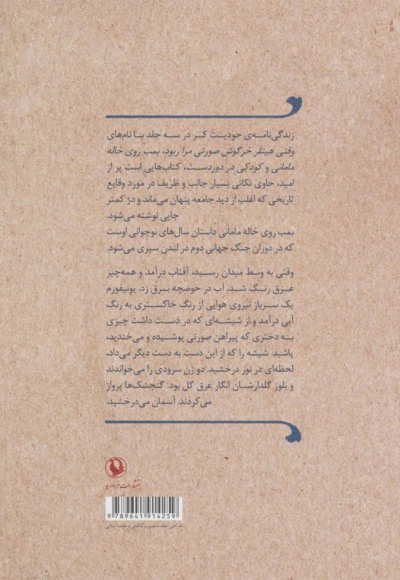 زندگی‌نامه‌ی جودیت کر در سه جلد با نام‌های
وقتی هیتلر خرگوش صورتی مرا ربود، بمب روی خاله
مامانی و کودکی در دوردست، کتاب‌هایی است پر از
امید، حاوی نکاتی بسیار جالب و ظریف در مورد وقایع
تاریخی که اغلب از دید جامعه پنهان می‌ماند و در کمتر
جایی نوشته می‌شود.
بمب روی خاله مامانی داستان سال‌های نوجوانی اوست
که در دوران جنگ جهانی دوم در لندن سپری می‌شود.
وقتی به وسط میدان رسید، آفتاب درآمد و همه‌چیز
غرق رنگ شد. آب در حوضچه برق زد. یونیفورم
یک سرباز نیروی هوایی از رنگ خاکستری به رنگ
آبی درآمد و از شیشه‌ای که در دست داشت چیزی
به دختری که پیراهن صورتی پوشیده و می‌خندید،
پاشید. شیشه را که از این دست به دست دیگر می‌داد،
لحظه‌ای در نور درخشید. دو زن سرودی را می‌خواندند
و بلوز گلدارشان انگار غرق گل بود. گنجشک‌ها پرواز
می‌کردند. آسمان می‌درخشید.
9 789641 914259